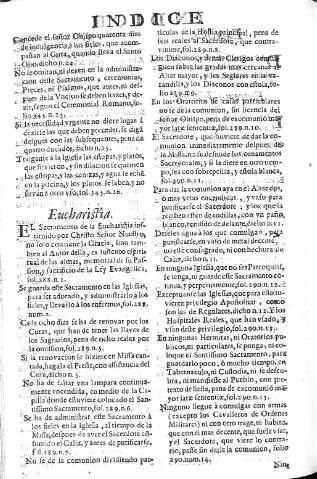 INDICE
Concede el señor Obispo quarenta dias
de indulgencia à los fieles, que acom-
pañan al Cura, quando lleva el Santo
Olio, dicho n.24.
No se omitan, ni dexen en la administra-
cion deste Sacramento, ceremonias,
Preces, ni Psalmos, que antes, ni des-
pues de la Vncion se deben
ir, segun el Ceremonial Romano, fo-
lio 245.n.25.
Si la necessidad vrgente no diere lugar à
dezirse las que deben preceder, se digã
despues con las subsequentes, pena de
quatro ducados, dicho n.25.
Traiganse à la Iglesia las estopas, y platos,
que sirvieron, y sin dilacion se quemen
las estopas, y las cenizas, y agua se eche
en la piscina, y los platos se laben, y no
sirvan à otro vso, fol.245.n.26.
Eucharistia.
EL Sacramento de la Eucharistia ins-
tituido por Christo Señor Nuestro,
no solo contiene la Gracia, sino tam-
bien al Autor della, es sustento espiri-
tual de las almas, memorial de su Pas-
sion, y sacrificio de la Ley Evangelica,
fol.288.n.1.
Se guarda este Sacramento en las Iglesias,
para ser adorado, y administrarlo à los
fieles, y llevarlo à los enfermos, fol.288.
num.2.
Cada ocho dias se ha de renovar por los
Curas, que han de tener las llaves de
los Sagrarios, pena de ocho reales por
la omission, fol.289.n.3.
Si la renovacion se hiziere en Missa can-
tada, hagala el Preste, con assistencia del
Cura, dicho n.5.
No ha de faltar vna lampara continua-
mente encendida, en medio de la Ca-
pilla donde estuviere colocado el San-
tissimo Sacramento, fol.289.n.6.
Se ha de administrar este Sacramento à
los fieles en la Iglesia, al tiempo de la
Missa, despues de aver el Sacerdote cõsu-
mido el Caliz, y antes de purificarse,
fol.289.n.7.
No se dè la comunion dividiendo par-
ticulas de la Hostia principal, pena de
seis reales al Sacerdote, que contra-
viniere, fol.289.n.8.
Los Diaconos, y demàs Clerigos comul-
guen sobre las gradas mas cercanas al
Altar mayor, y los Seglares en la va-
randilla, y los Diaconos con estola, fo-
lio 289.n.9.
En los Oratorios de casas particulares
no se dè la comunion, sin licencia del
señor Obispo, pena de excomunion ma-
yor latæ sententiæ, fol.290.n.10.
El Sacerdote, que huviere de dar la co-
munion inmediatamente despues de
la Missa, no se desnude los ornamentos
Sacerdotales, y si la diere en otro tiem-
po, sea con sobrepelliz, y estola blanca,
fol.290.n.11.
Para dar la comunion aya en el Altar dos,
ò mas velas encendidas, y vaso para
purificarse el Sacerdote, y los que la
reciben estèn de rodillas, con vn paño,
blanco, tendido delante, dicho n.11.
Deseles agua à los que comulgan, para
purificarse, en vaso de metal decente,
no el Caliz consagrado, ni con hechura
dèl, dicho n.11.
En ninguna Iglesia, que no sea Parroquial,
se tenga, ni guarde este Sacramento cõ-
tinua, y perpetuamente, fol.290.n.12.
Exceptuanse las Iglesias, que para ello tu-
vieren privilegio Apostolico, como
son las de Regulares, dicho n.12. Y los
Hospitales Reales, que han vsado, y
vsan deste privilegio, fol.290.n.13.
En ningunas Hermitas, ni Oratorios pu-
blicos, ni particulares, se ponga, ni co-
loque el Santissimo Sacramento, para
guardarlo poco, ò mucho tiempo, en
Tabernaculo, ni Custodia, ni se descu-
bra, ni manifieste al Pueblo, con pre-
texto de fiesta, pena de excomunion ma-
yor latæ sententiæ, fol.290.n.13.
Ninguno llegue à comulgar con armas
(excepto los Cavalleros de Ordenes
Militares) ni con otro trage, ni habito,
que con el mas decente, que suele vsar,
y el Sacerdote, que viere lo contra-
rio, passe sin darle la comunion, folio
290.num.14.
Ning